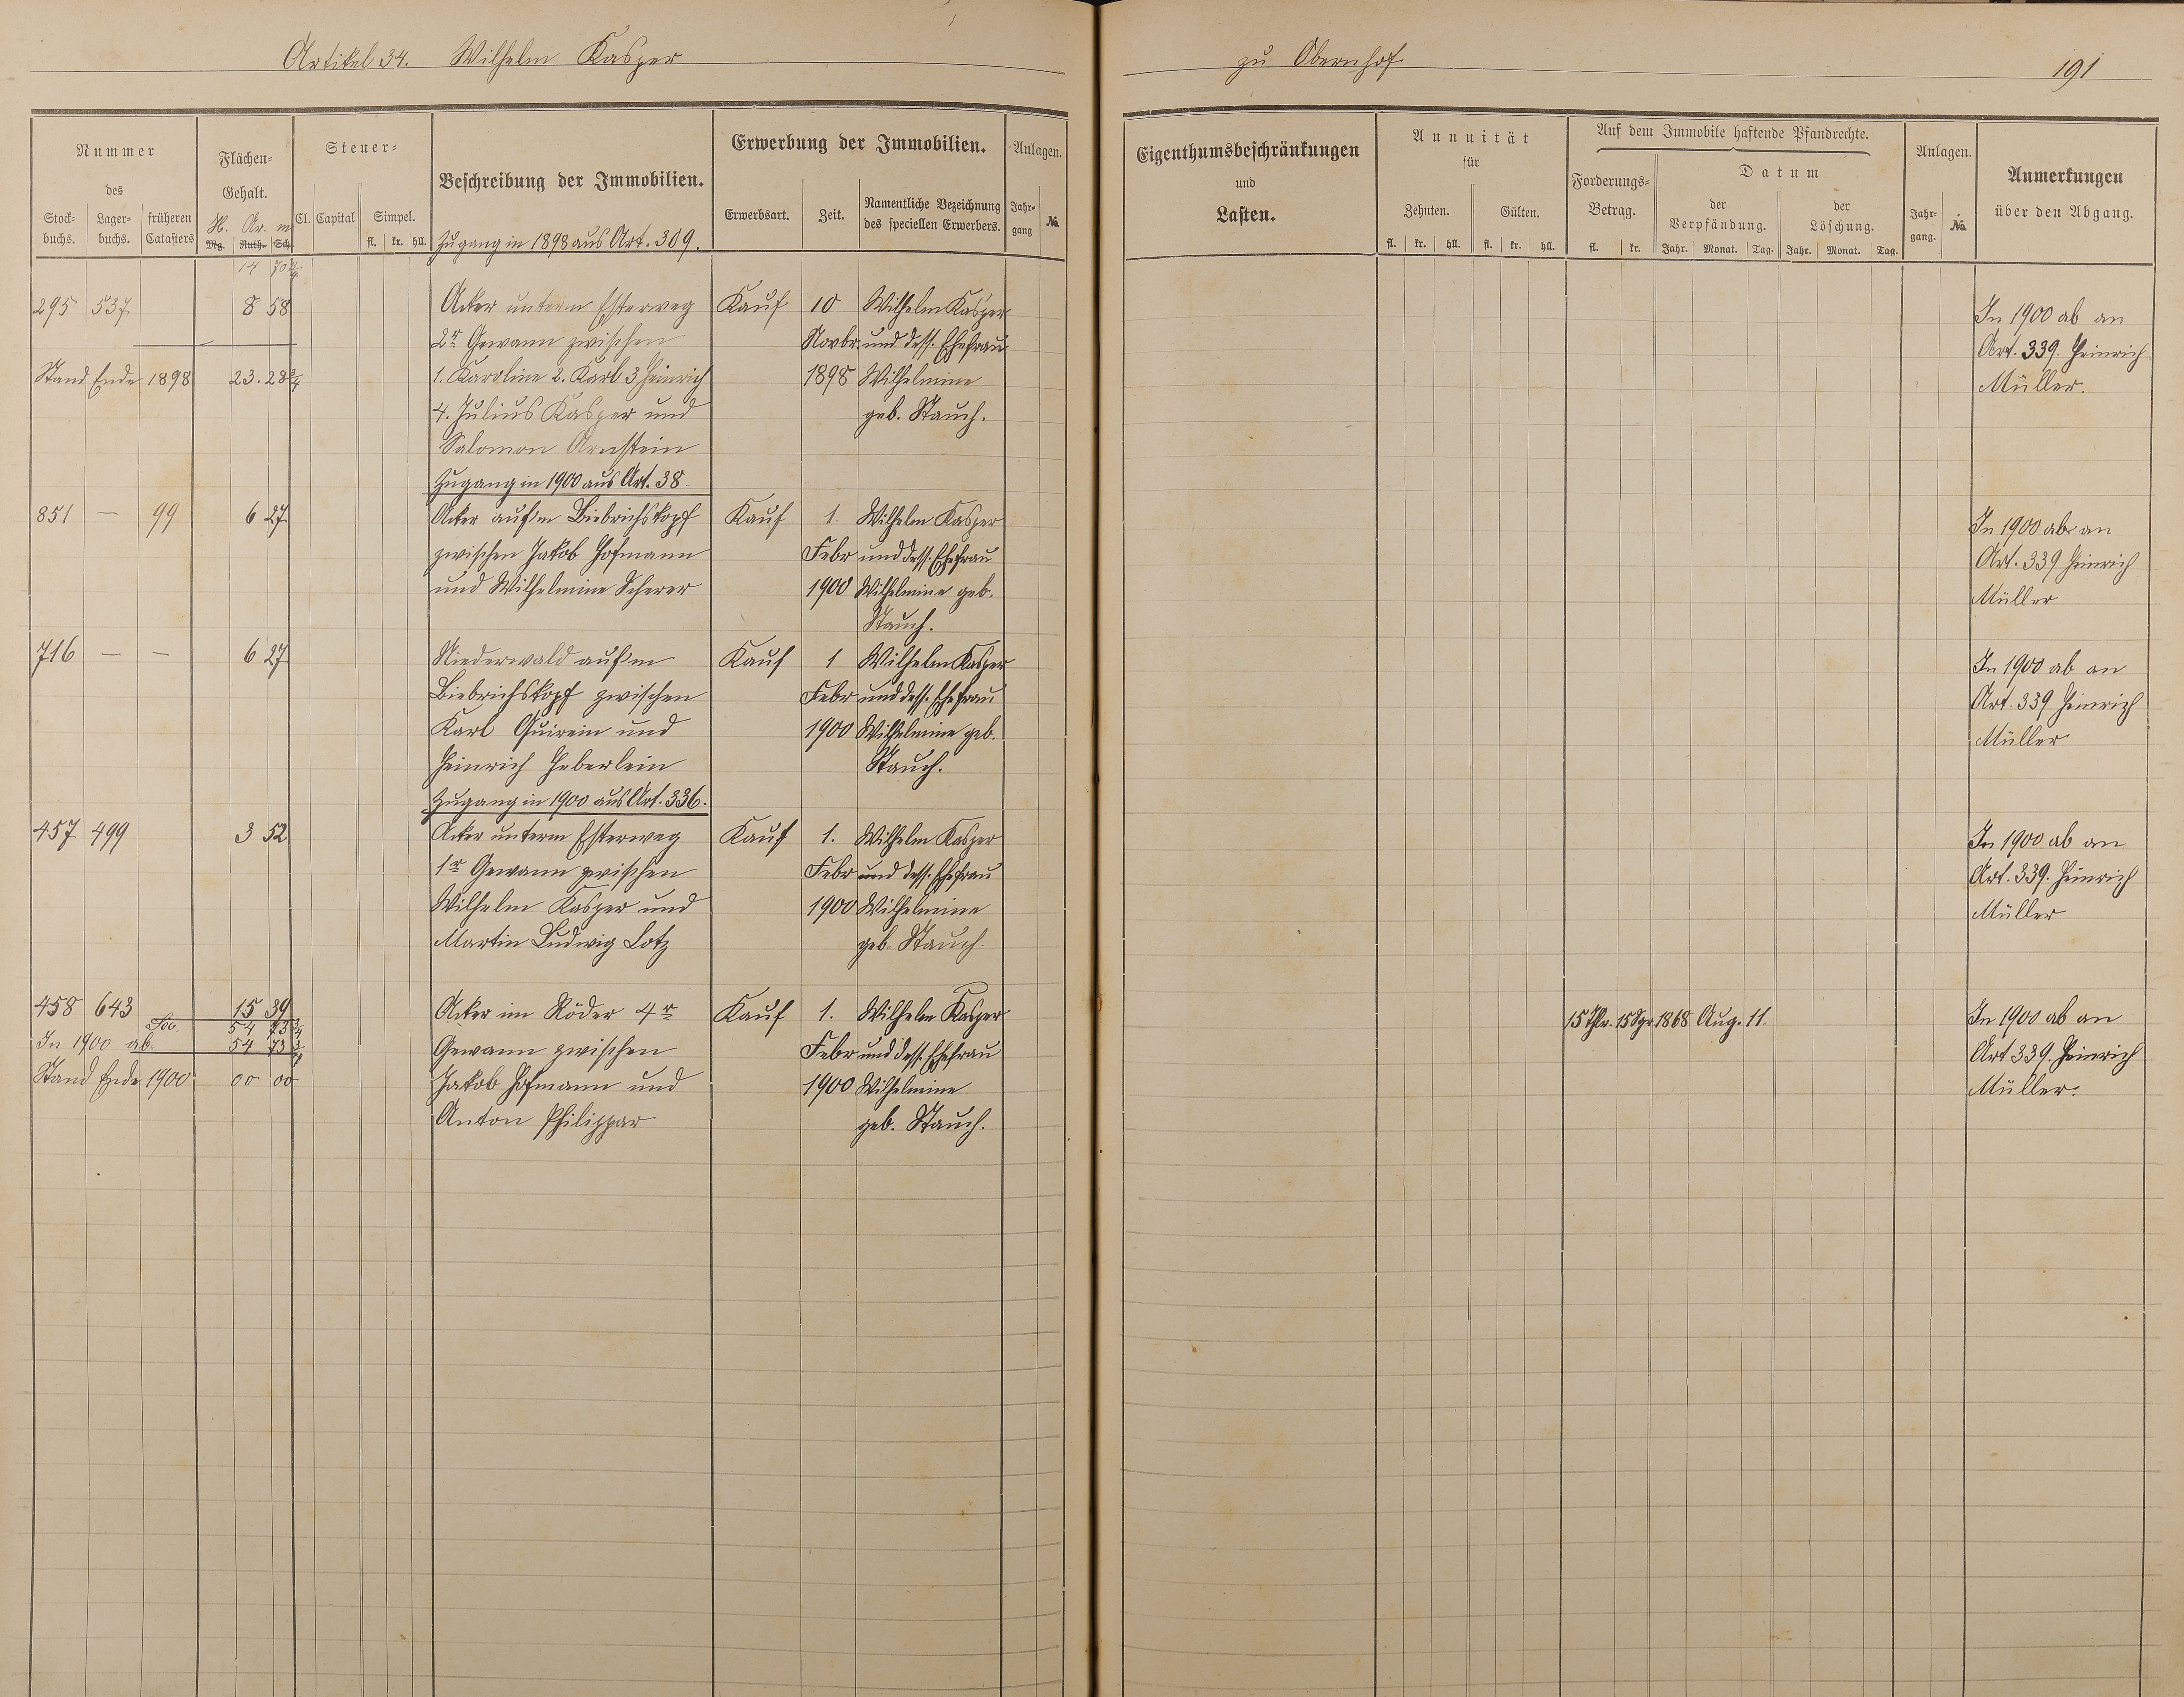 Artikel 34. Wilhelm Kasper
zu Obernhof
191
Nummer
des
Stock-
buchs.
Lager-
buchs.
früheren
Catasters
Flächen-
Gehalt.
H. Ar. m
Mg. Ruth. Sch.
Steuer-
Cl. Capital Simpel.
fl. kr. hll.
Beschreibung der Immobilien.
Zugang in 1898 aus Art. 309.
Erwerbung der Immobilien.
Erwerbsart. Zeit.
Namentliche Bezeichnung
des speciellen Erwerbers.
Anlagen.
Jahr-
gang
No.
Eigenthumsbeschränkungen
und
Lasten.
Annuität
für
Zehnten. Gülten.
fl. kr. hll. fl. kr. hll.
Auf dem Immobile haftende Pfandrechte.
Forderungs-
Betrag.
fl. kr.
Datum
der
Verpfändung.
der
Löschung.
Jahr. Monat. Tag. Jahr. Monat. Tag.
Anlagen.
Jahr-
gang.
No.
Anmerkungen
über den Abgang.
14 70 3/4
295 537 8 58 Acker unterm Esterweg Kauf 10 Wilhelm Kasper
2r Gewann zwischen Novbr. und dess. Ehefrau
Stand Ende 1898 23. 28 3/4 1. Karoline 2. Karl 3 Heinrich 1898 Wilhelmine
4. Julius Kasper und geb. Stauch.
Salomon Arnstein
In 1900 ab an
Art. 339. Heinrich
Müller.
Zugang in 1900 aus Art. 38
851 — 99 6 27 Acker auf'm Biebrichskopf Kauf 1. Wilhelm Kasper
zwischen Jakob Hofmann Febr und dess. Ehefrau
und Wilhelmine Scherer 1900 Wilhelmine geb.
Stauch.
In 1900 ab an
Art. 339 Heinrich
Müller
716 — — 6 27 Niederwald auf'm Kauf 1 Wilhelm Kasper
Biebrichskopf zwischen Febr und dess. Ehefrau
Karl Quirein und 1900 Wilhelmine geb.
Heinrich Heberlein Stauch.
In 1900 ab an
Art. 339 Heinrich
Müller
Zugang in 1900 aus Art. 336.
457 499 3 52 Acker unterm Esterweg Kauf 1. Wilhelm Kasper
1r Gewann zwischen Febr und dess. Ehefrau
Wilhelm Kasper und 1900 Wilhelmine
Martin Ludwig Lotz geb. Stauch
In 1900 ab an
Art. 339. Heinrich
Müller
458 643 15 39 Acker im Röder 4r Kauf 1. Wilhelm Kasper
54 73 3/4
In 1900 ab 54 73 3/4 Gewann zwischen Febr und dess. Ehefrau
Stand Ende 1900 00 00 Jakob Hofmann und 1900 Wilhelmine
Anton Philippar geb. Stauch.
15 Thlr. 15 Sgr. 1868 Aug. 11.
In 1900 ab an
Art 339. Heinrich
Müller.